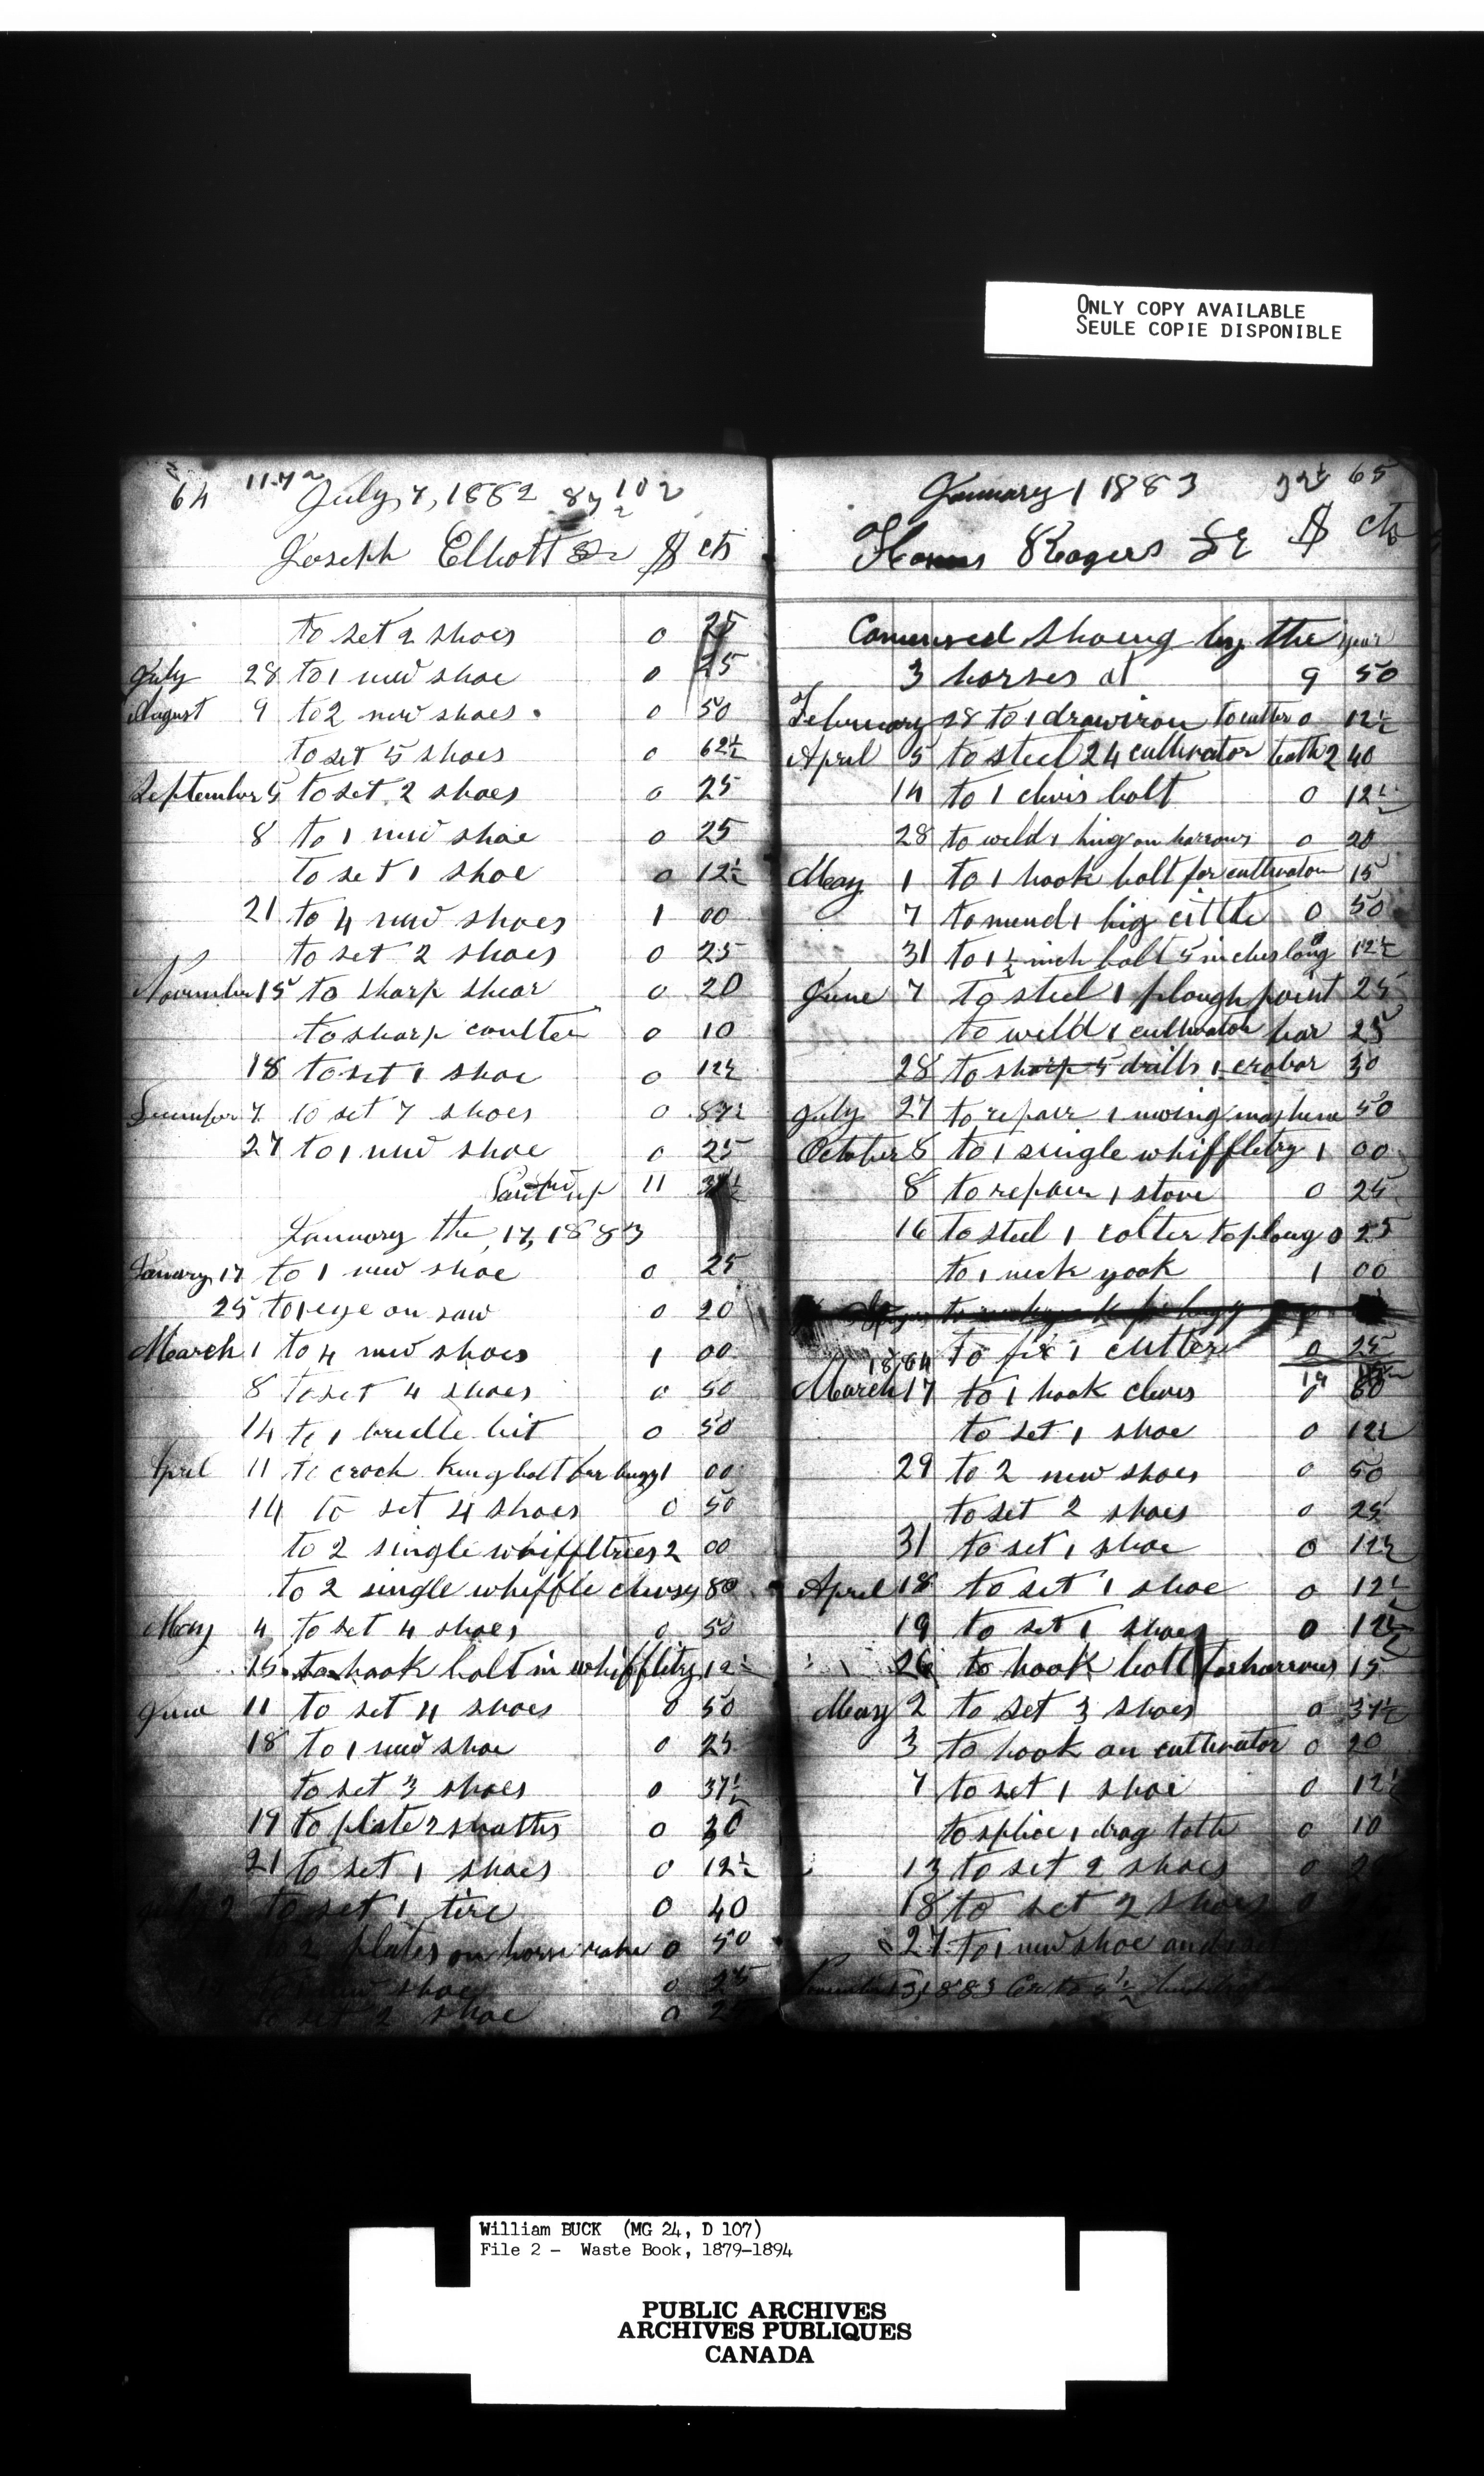 ONLY COPY AVAILABLE
SEULE COPIE DISPONIBLE
64 July 7, 1882
Joseph Elliott Sr $ cts
to set 2 shoes 0 25
July 28 to 1 new shoe 0 25
August 9 to 2 new shoes 0 50
to set 5 shoes 0 62½
September 5 to set 2 shoes 0 25
8 to 1 new shoe 0 25
to set 1 shoe 0 12½
21 to 4 new shoes 1 00
to set 2 shoes 0 25
November 15 to sharp shear 0 20
to sharp coulter 0 10
18 to set 1 shoe 0 12½
December 7 to set 7 shoes 0 87½
27 to 1 new shoe 0 25
up 11
January the 17, 1883
January 17 to 1 new shoe 0 25
25 to 1 eye on saw 0 20
March 1 to 4 new shoes 1 00
8 to set 4 shoes 0 50
14 to 1 bridle bit 0 50
April 11 to crock king bolt for bugy 1 00
14 to set 4 shoes 0 50
to 2 single whiffltrees 2 00
to 2 single whiffle 80
May 4 to set 4 shoes 0 50
15 to hook bolt in 12½
June 11 to set 4 shoes 0 50
18 to 1 new shoe 0 25
to set 3 shoes 0 37½
19 to plate 2 0 30
21 to set 1 shoes 0 12½
2 to set 1 tire 0 40
to 2 plates on horse rake 0 50
new shoe 0 25
set 2 shoe 0 25
January 1 1883 65
Rogers $ cts
shoing by the year
3 horses at 9 50
February 28 to 1 drawiron to cutter 0 12½
April 5 to steel 24 cultivator teeth 2 40
14 to 1 clivis bolt 0 12½
28 to weld 1 hing on harrows 0 20
May 1 to 1 hook bolt for cultivator 15
7 to mend 1 big cittle 0 50
31 to 1 ½ inch bolt 5 inches long 0 12½
June 7 to steel 1 plough point 25
to weld 1 cultivator bar 25
28 to sharp 5 drills 1 crobar 30
July 27 to repair 1 moing 50
October 8 to 1 single 1 00
8 to repair 1 stove 0 25
16 to steel 1 colter to ploug 0 25
to 1 neck yook 1 00
to fix 1 cutter 0 25
1884 19
March 17 to 1 hook clivis 0
to set 1 shoe 0 12½
29 to 2 new shoes 0 50
to set 2 shoes 0 25
31 to set 1 shoe 0 12½
April 18 to set 1 shoe 0 12½
19 to set 1 shoes 0 12½
26 to hook bolt for harrows 15
May 2 to set 3 shoes 0 37½
3 to hook on cultivator 0 20
7 to set 1 shoe 0 12½
to splice 1 drag toth 0 10
13 to set 2 shoes 0
18 to set 2 shoes 0
27 to 1 new shoe and
1883
William BUCK (MG 24, D 107)
File 2 - Waste Book, 1879-1894
PUBLIC ARCHIVES
ARCHIVES PUBLIQUES
CANADA